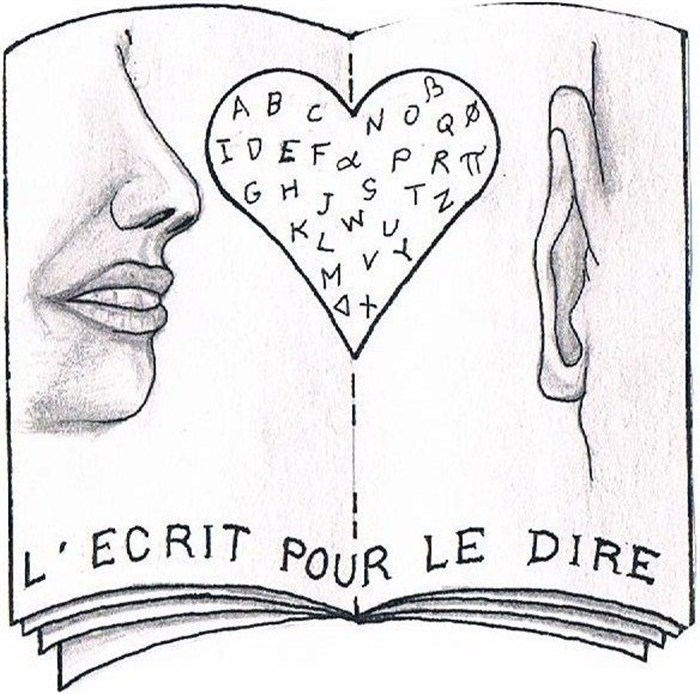 A B C N O β Q Ø
I D E F α P R π
G H J S T Z
K L W U Y
M V
Δ +
L'ECRIT POUR LE DIRE